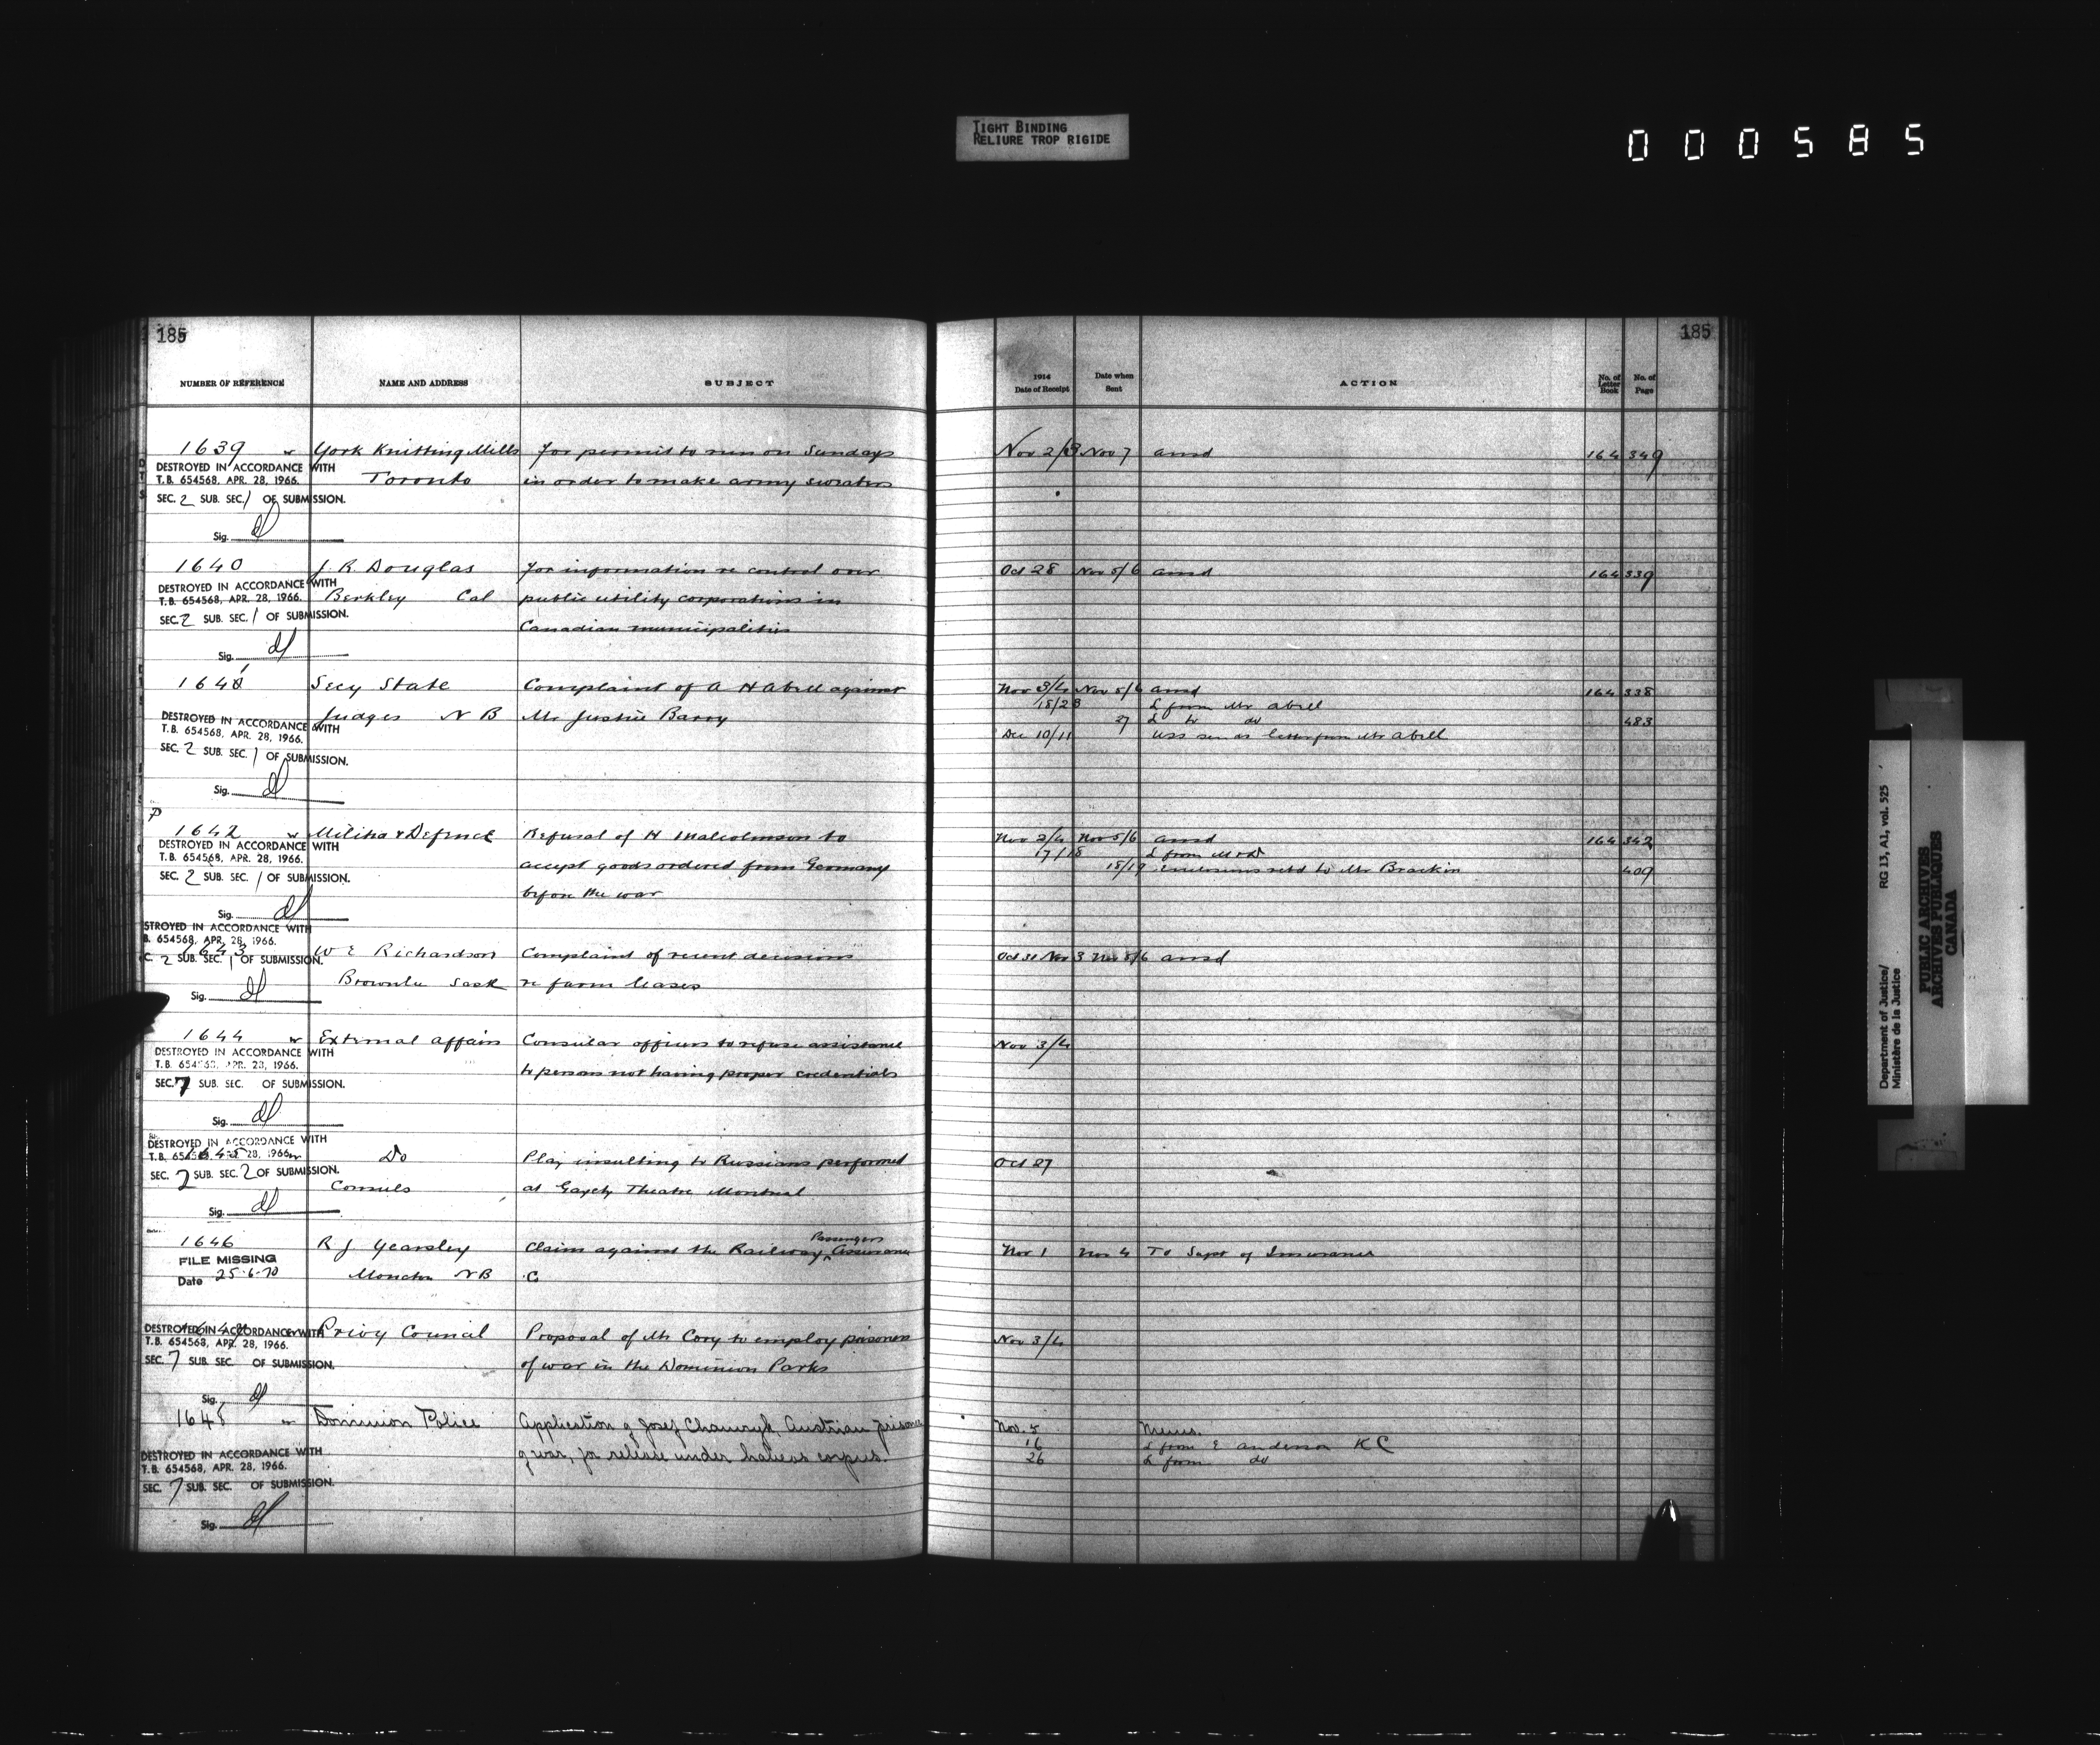 TIGHT BINDING
RELIURE TROP RIGIDE
000585
185
NUMBER OF REFERENCE NAME AND ADDRESS SUBJECT
1639 York Knitting Mills For permit to run on Sundays
DESTROYED IN ACCORDANCE WITH
T.B. 654568, APR. 28, 1966. Toronto in order to make army sweaters
SEC. 2 SUB. SEC. 1 OF SUBMISSION.
Sig.
1640 J. R. Douglas For information re control over
DESTROYED IN ACCORDANCE WITH
T.B. 654568, APR. 28, 1966. Berkley Cal public utility corporations in
SEC. 2 SUB. SEC. 1 OF SUBMISSION.
Canadian municipalities
Sig.
1641 Secy State Complaint of A H Abell against
Judges N B Mr Justice Barry
DESTROYED IN ACCORDANCE WITH
T.B. 654568, APR. 28, 1966.
SEC. 2 SUB. SEC. 1 OF SUBMISSION.
Sig.
P
1642 Militia & Defence Refusal of H Malcolmson to
DESTROYED IN ACCORDANCE WITH
T.B. 654568, APR. 28, 1966. accept goods ordered from Germany
SEC. 2 SUB. SEC. 1 OF SUBMISSION.
before the war
Sig.
STROYED IN ACCORDANCE WITH
B. 654568, APR. 28, 1966.
1643 W E Richardson Complaint of recent decisions
C. 2 SUB. SEC. 1 OF SUBMISSION.
Brownlee Sask re farm leases
Sig.
1644 External Affairs Consular officers to refuse assistance
DESTROYED IN ACCORDANCE WITH
T.B. 654568, APR. 28, 1966. to persons not having proper credentials
SEC. 7 SUB. SEC. OF SUBMISSION.
Sig.
DESTROYED IN ACCORDANCE WITH
T.B. 654568, APR. 28, 1966.
1645 Do Play insulting to Russians performed
SEC. 2 SUB. SEC. 2 OF SUBMISSION.
Consuls at Gayety Theatre Montreal
Sig.
1646 R J. Yearsley Claim against the Railway Passengers Assurance
FILE MISSING
Date 25-6-70 Moncton N B Co
DESTROYED IN ACCORDANCE WITH
1647 Privy Council Proposal of Mr Cory to employ prisoners
T.B. 654568, APR. 28, 1966.
SEC. 7 SUB. SEC. OF SUBMISSION. of war in the Dominion Parks
Sig.
1648 Dominion Police Application of Josef Austrian prisoner
of war, for release under habeas corpus.
DESTROYED IN ACCORDANCE WITH
T.B. 654568, APR. 28, 1966.
SEC. 7 SUB. SEC. OF SUBMISSION.
Sig.
185
1914
Date of Receipt Date when Sent ACTION No. of Letter Book No. of Page
Nov 2/3 Nov 7 ansd 164 349
Oct 28 Nov 5/6 ansd 164 339
Nov 3/4 Nov 5/6 ansd 164 338
18/23 L from Mr Abell
27 L to do 483
Dec 10/11 letter from Mr Abell
Nov 2/4 Nov 5/6 ansd 164 342
17/18 L from M & D
18/19 enclosures retd to Mr Brackin 409
Oct 31 Nov 3 Nov 5/6 ansd
Nov 3/4
Oct 27
Nov 1 Nov 4 To Supt of Insurance
Nov 3/4
Nov. 5 Memo.
16 L from E Anderson KC
26 L from do
Department of Justice/
Ministère de la Justice
RG 13, A1, vol. 525
PUBLIC ARCHIVES
ARCHIVES PUBLIQUES
CANADA